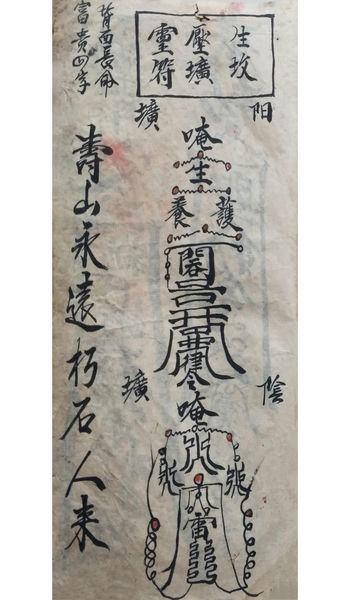 生坆
壓壙
靈符
阳壙
陰壙
唵
生
護養
唵
雷
背面長命
富貴四字
壽山永遠朽石人来